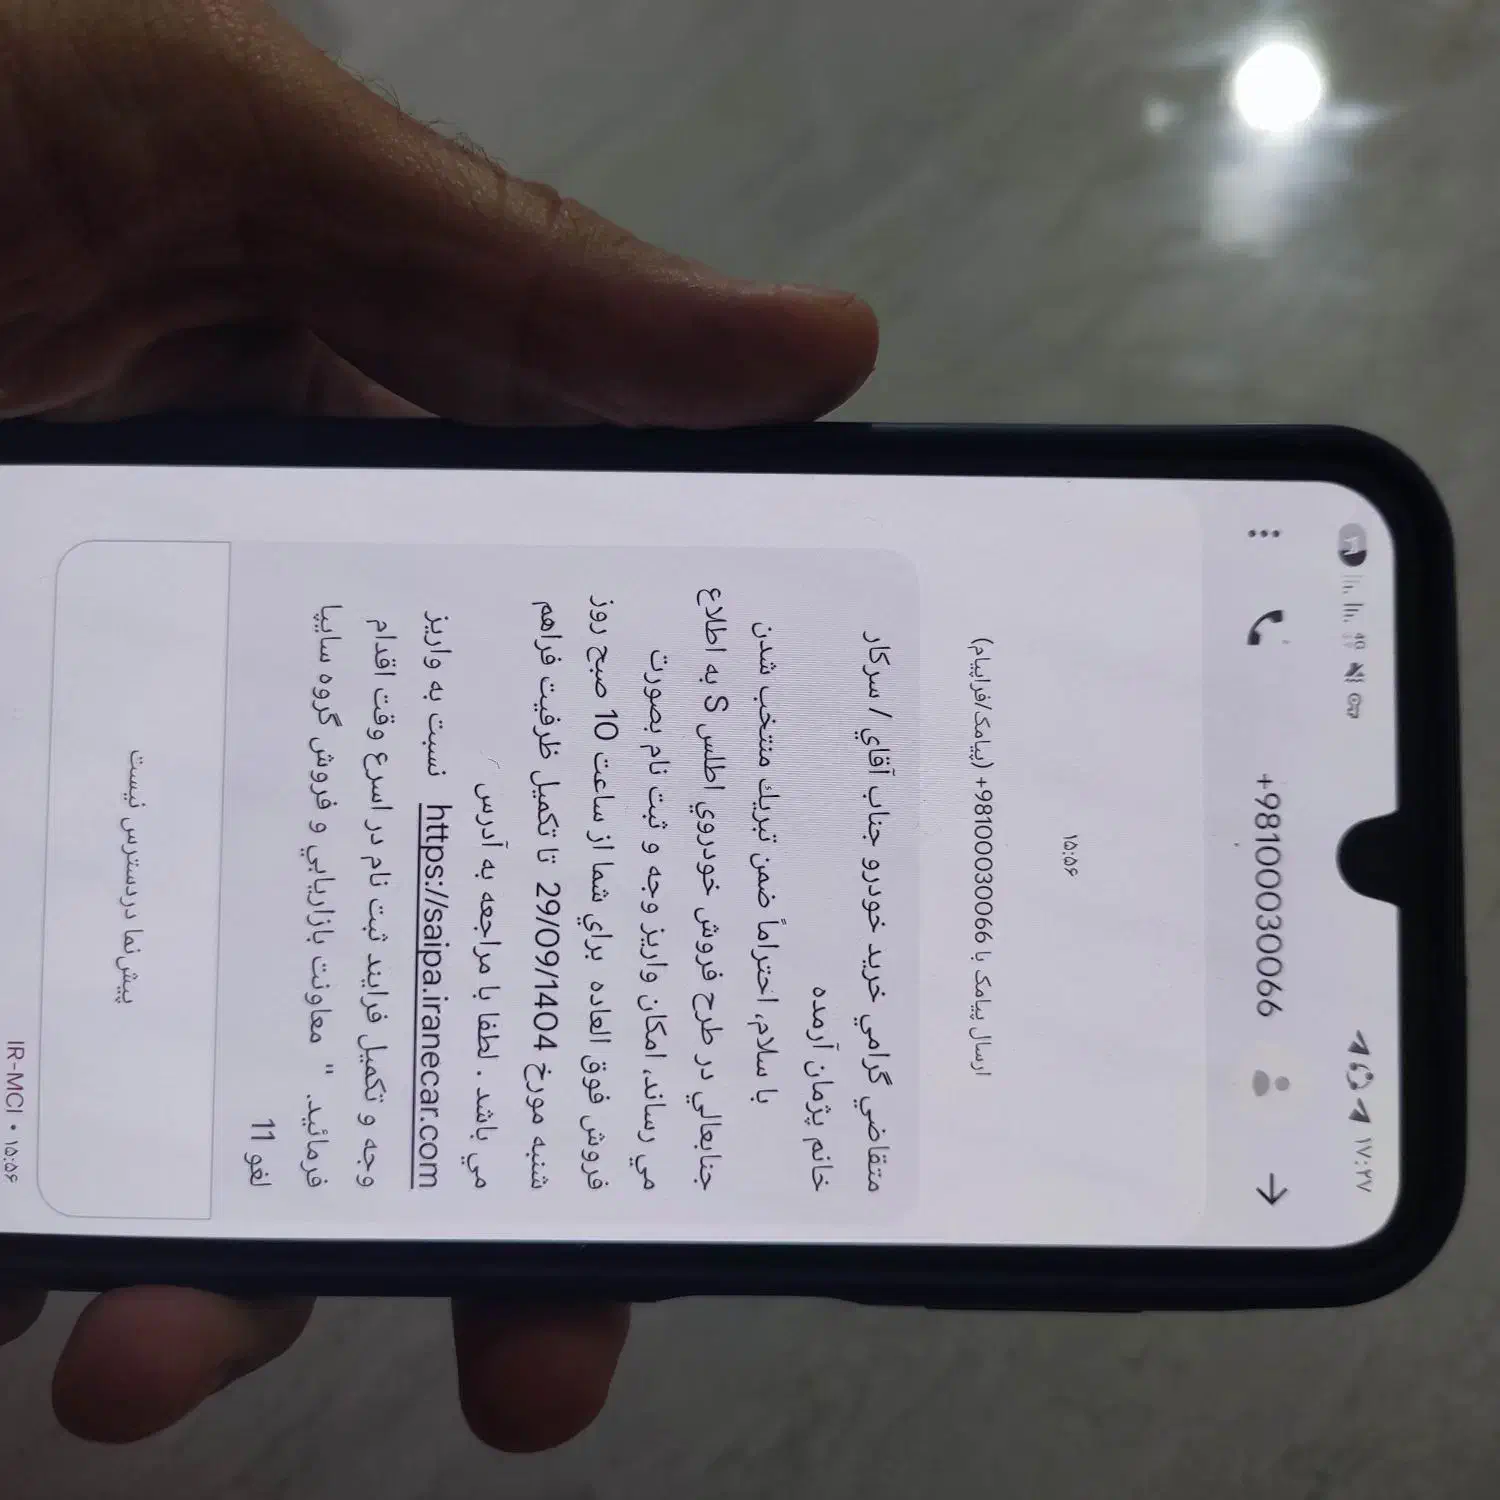 ۱۷:۲۷
4G
+98100030066
۱۵:۵۶
ارسال پیامک با 98100030066+ (پیامک/فراپیام)
متقاضي گرامي خريد خودرو جناب آقاي / سرکار
خانم پژمان آرمده
با سلام، احتراماً ضمن تبريك منتخب شدن
جنابعالي در طرح فروش خودروي اطلس S به اطلاع
مي رساند، امکان واریز وجه و ثبت نام بصورت
فروش فوق العاده براي شما از ساعت 10 صبح روز
شنبه مورخ 29/09/1404 تا تکمیل ظرفیت فراهم
مي باشد . لطفا با مراجعه به آدرس
https://saipa.iranecar.com نسبت به واریز
وجه و تکمیل فرایند ثبت نام در اسرع وقت اقدام
فرمائید. " معاونت بازاريابي و فروش گروه سایپا
لغو 11
پیش‌نما دردسترس نیست
IR-MCI • ۱۵:۵۶